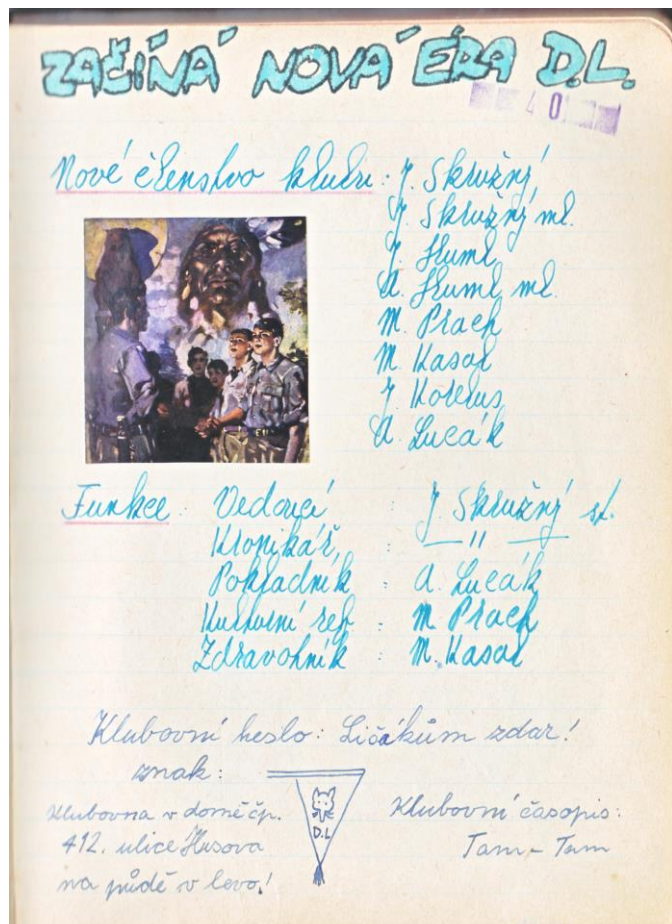 ZAČÍNÁ NOVÁ ÉRA D.L.
40
Nové členstvo klubu: J. Skružný
J. Skružný ml.
J. Huml
A. Huml ml.
M. Prach
M. Kasal
J. Korbus
A. Lucák
Funkce: Vedoucí : J. Skružný st.
Kronikář, — " —
Pokladník : A. Lucák
Kulturní ref. : M. Prach
Zdravotník : M. Kasal
Klubovní heslo: Ličákům zdar!
znak:
D.L
Klubovna v domě čp.
412. ulice Husova
na půdě v levo!
Klubovní časopis:
Tam-Tam